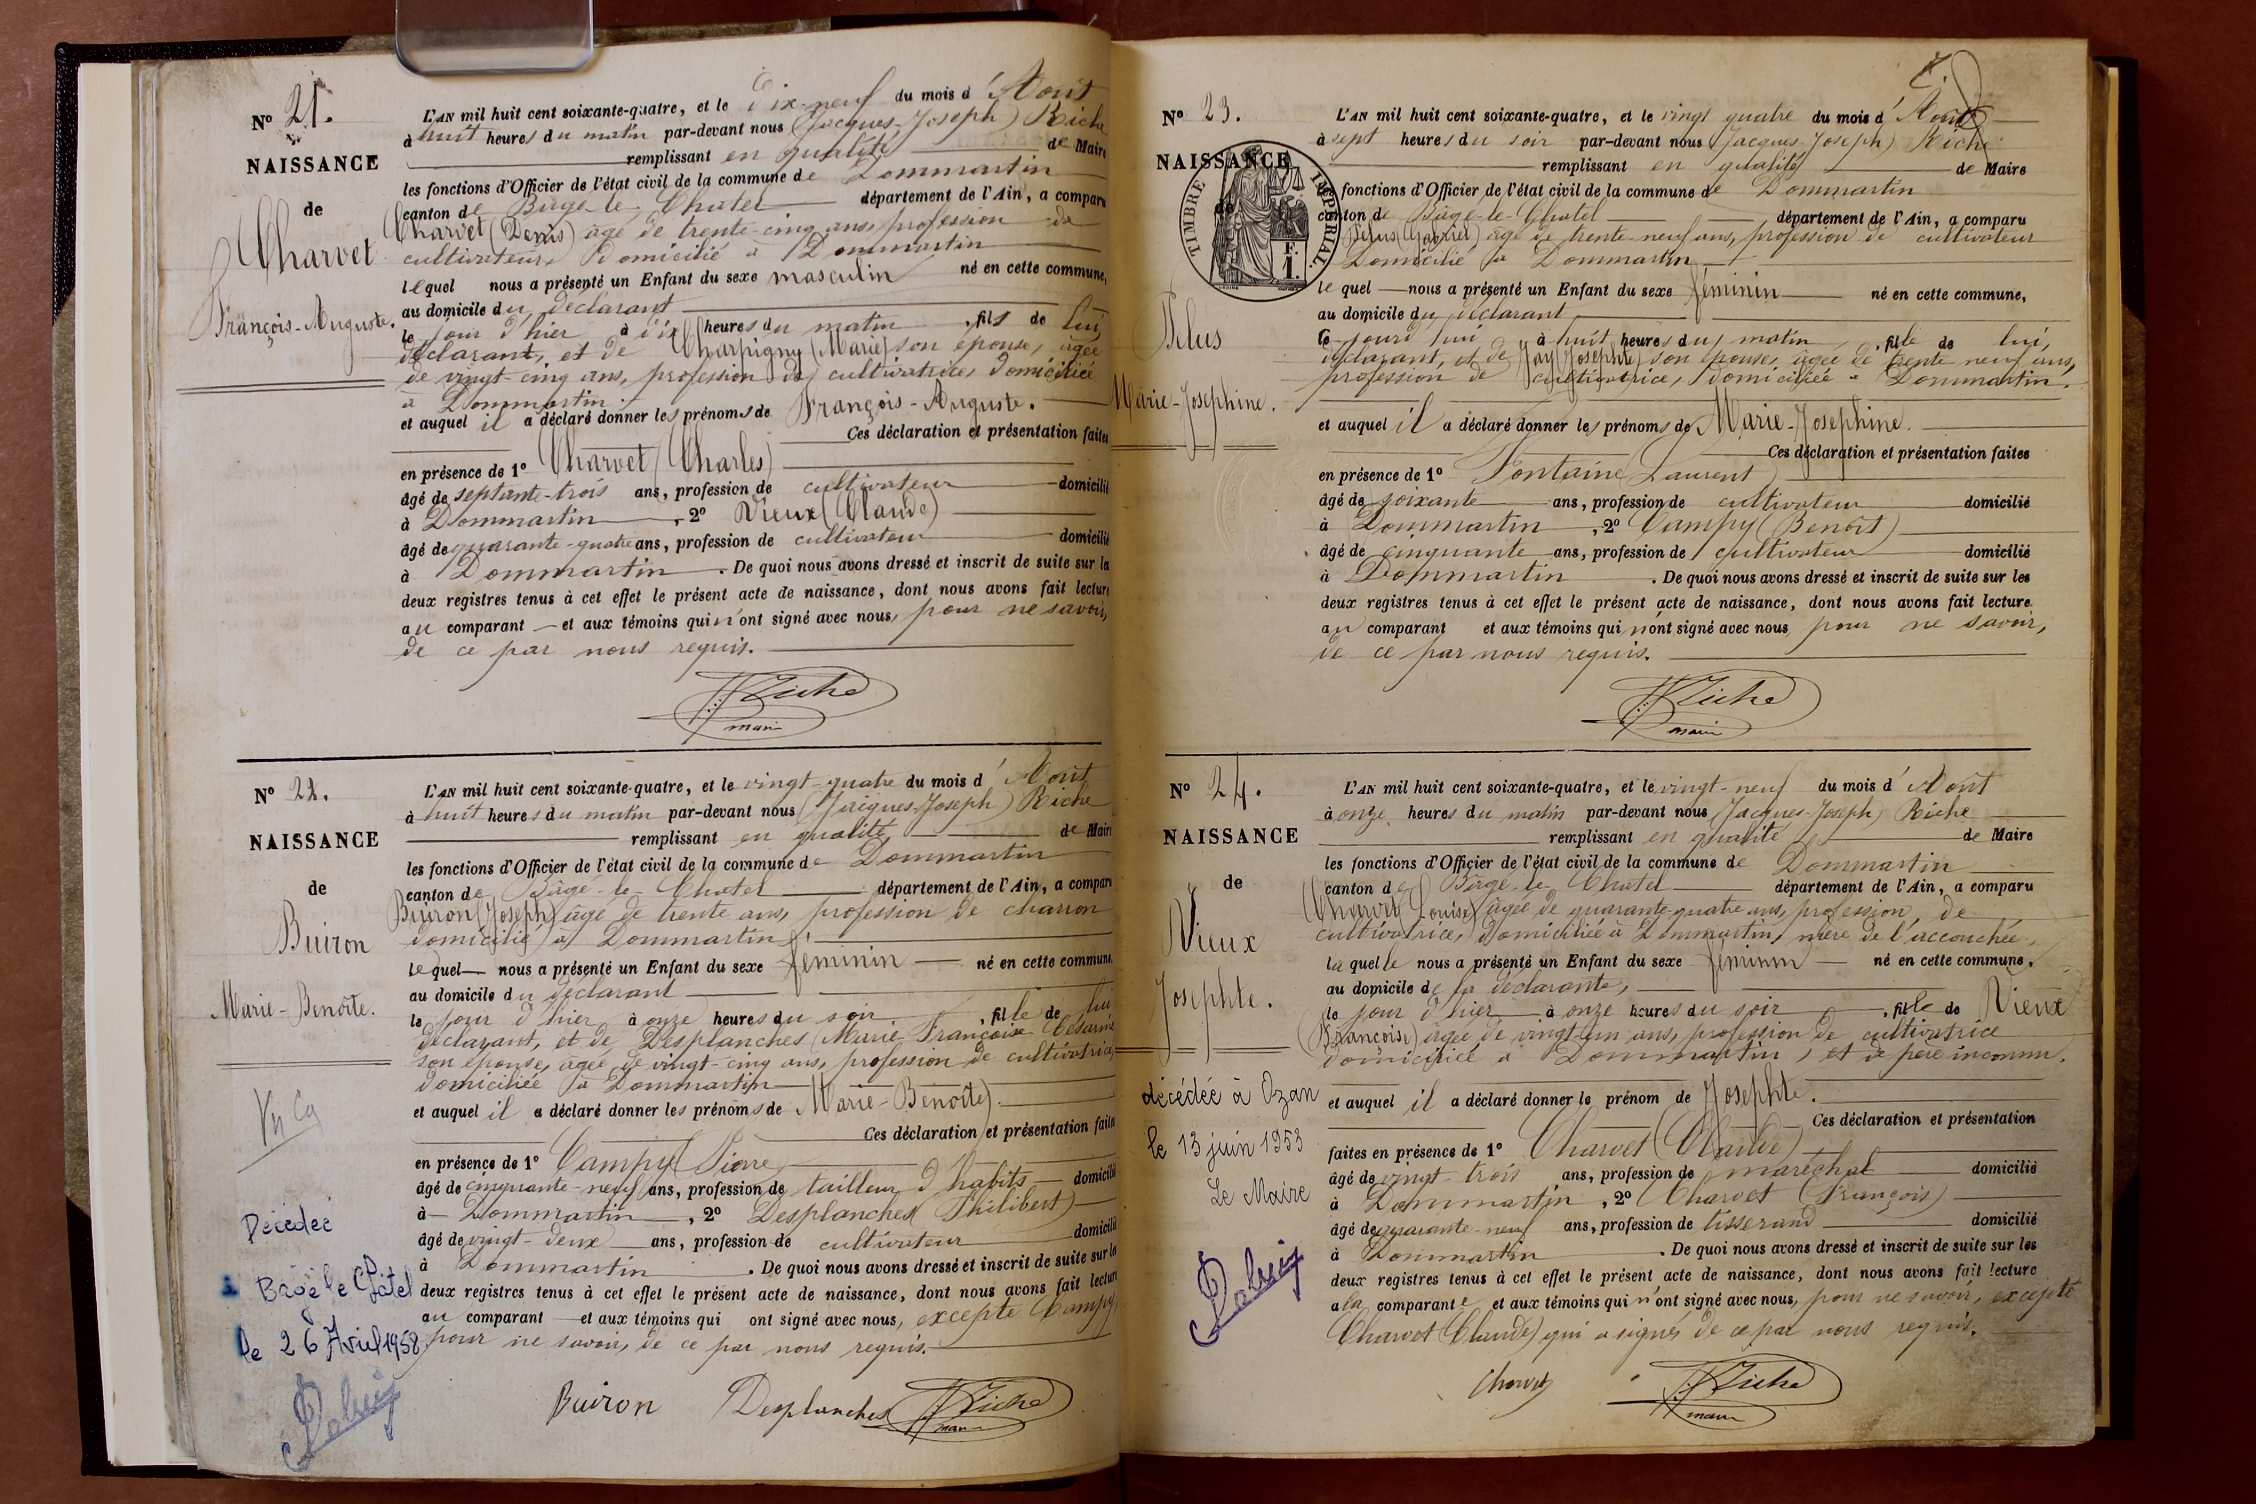 N° 21.
NAISSANCE
de
Charvet
François-Auguste.
L'AN mil huit cent soixante-quatre, et le Dix-neuf du mois d'Août
à huit heures du matin par-devant nous (Jacques-Joseph) Riche
remplissant en qualité de Maire
les fonctions d'Officier de l'état civil de la commune de Dommartin
canton de Bâgé-le-Chatel département de l'Ain, a comparu
Charvet (Denis) âgé de trente-cinq ans, profession de
cultivateur, domicilié à Dommartin
lequel nous a présenté un Enfant du sexe masculin né en cette commune,
au domicile du déclarant
le jour d'hier à dix heures du matin, fils de lui,
déclarant, et de Charpigny (Marie) son épouse, âgée
de vingt-cinq ans, profession de cultivatrice, domiciliée
à Dommartin.
et auquel il a déclaré donner les prénoms de François-Auguste.
Ces déclaration et présentation faites
en présence de 1° Charvet (Charles)
âgé de septante-trois ans, profession de cultivateur domicilié
à Dommartin, 2° Vieux (Claude)
âgé de quarante-quatre ans, profession de cultivateur domicilié
à Dommartin. De quoi nous avons dressé et inscrit de suite sur les
deux registres tenus à cet effet le présent acte de naissance, dont nous avons fait lecture
au comparant et aux témoins qui n'ont signé avec nous, pour ne savoir,
de ce par nous requis.
Riche
maire
N° 22.
NAISSANCE
de
Buiron
Marie-Benoîte.
Décédée
Bagé le Châtel
le 26 Avril 1958
L'AN mil huit cent soixante-quatre, et le vingt-quatre du mois d'Août
à huit heures du matin par-devant nous (Jacques-Joseph) Riche
remplissant en qualité de Maire
les fonctions d'Officier de l'état civil de la commune de Dommartin
canton de Bâgé-le-Chatel département de l'Ain, a comparu
Buiron (Joseph) âgé de trente ans, profession de charron
domicilié à Dommartin
lequel nous a présenté un Enfant du sexe féminin né en cette commune,
au domicile du déclarant
le jour d'hier à onze heures du soir, fille de lui
déclarant, et de Desplanches (Marie Françoise Césarine
son épouse, âgée de vingt-cinq ans, profession de cultivatrice,
domiciliée à Dommartin
et auquel il a déclaré donner les prénoms de Marie-Benoîte)
Ces déclaration et présentation faites
en présence de 1° Campy (Pierre)
âgé de cinquante-neuf ans, profession de tailleur d'habits domicilié
à Dommartin, 2° Desplanches (Philibert)
âgé de vingt-deux ans, profession de cultivateur domicilié
à Dommartin. De quoi nous avons dressé et inscrit de suite sur les
deux registres tenus à cet effet le présent acte de naissance, dont nous avons fait lecture
au comparant et aux témoins qui ont signé avec nous, excepté Campy
pour ne savoir, de ce par nous requis.
Buiron Desplanches Riche
maire
N° 23.
NAISSANCE
de
TIMBRE IMPERIAL.
1 F.
Pelus
Marie-Josephine.
L'AN mil huit cent soixante-quatre, et le vingt quatre du mois d'Août
à sept heures du soir par-devant nous (Jacques-Joseph) Riche
remplissant en qualité de Maire
les fonctions d'Officier de l'état civil de la commune de Dommartin
canton de Bâgé-le-Chatel département de l'Ain, a comparu
Pelus (Gabriel) âgé de trente-neuf ans, profession de cultivateur
Domicilié à Dommartin
lequel nous a présenté un Enfant du sexe féminin né en cette commune,
au domicile du déclarant
le jourd'hui à huit heures du matin, fille de lui,
déclarant, et de Jay (Josephte) son épouse, âgée de trente neuf ans,
profession de cultivatrice, domiciliée à Dommartin.
et auquel il a déclaré donner les prénoms de Marie-Josephine.
Ces déclaration et présentation faites
en présence de 1° Fontaine Laurent)
âgé de soixante ans, profession de cultivateur domicilié
à Dommartin, 2° Campy (Benoît)
âgé de cinquante ans, profession de cultivateur domicilié
à Dommartin. De quoi nous avons dressé et inscrit de suite sur les
deux registres tenus à cet effet le présent acte de naissance, dont nous avons fait lecture
au comparant et aux témoins qui n'ont signé avec nous pour ne savoir,
de ce par nous requis.
Riche
maire
N° 24.
NAISSANCE
de
Vieux
Josephte.
décédée à Ozan
le 13 juin 1953
Le Maire
L'AN mil huit cent soixante-quatre, et le vingt-neuf du mois d'Août
à onze heures du matin par-devant nous (Jacques-Joseph) Riche
remplissant en qualité de Maire
les fonctions d'Officier de l'état civil de la commune de Dommartin
canton de Bâgé-le-Chatel département de l'Ain, a comparu
Charvet (Louise) âgée de quarante-quatre ans, profession, de
cultivatrice, domiciliée à Dommartin, mère de l'accouchée,
laquelle nous a présenté un Enfant du sexe féminin né en cette commune,
au domicile de la déclarante,
le jour d'hier à onze heures du soir, fille de Vieux
(Françoise) âgée de vingt-un ans, profession de cultivatrice
domiciliée à Dommartin, et de père inconnu.
et auquel il a déclaré donner le prénom de Josephte.
Ces déclaration et présentation
faites en présence de 1° Charvet (Claude)
âgé de vingt-trois ans, profession de maréchal domicilié
à Dommartin, 2° Charvet (François)
âgé de quarante-neuf ans, profession de tisserand domicilié
à Dommartin. De quoi nous avons dressé et inscrit de suite sur les
deux registres tenus à cet effet le présent acte de naissance, dont nous avons fait lecture
à la comparante et aux témoins qui n'ont signé avec nous, pour ne savoir, excepté
Charvet (Claude) qui a signé, de ce par nous requis.
Charvet Riche
maire